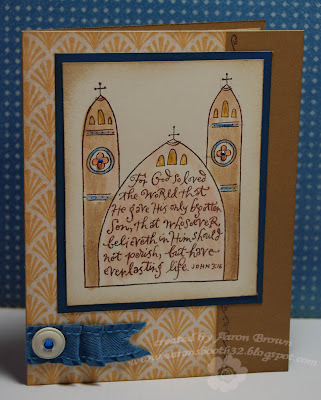 For God so loved
the WoRld that
He gave His only begotten
Son, that whosoeveR
believeth in Him should
not perish, but have
everlasting life. JOHN 3:16
created by Aaron Brown
www.aaronsbooth32.blogspot.com